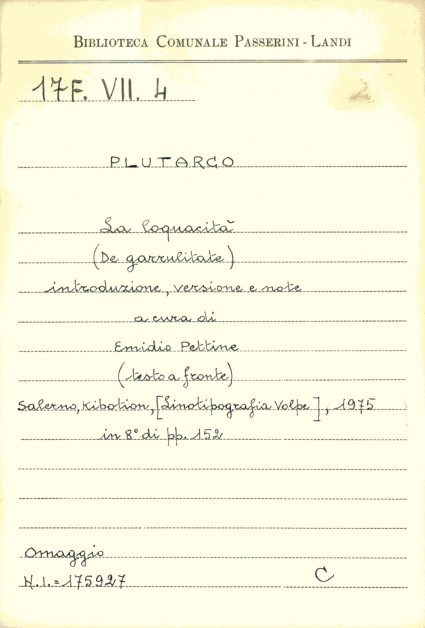 BIBLIOTECA COMUNALE PASSERINI - LANDI
17F. VII. 4
2
PLUTARCO
La loquacità
(De garrulitate)
introduzione, versione e note
a cura di
Emidio Pettine
(testo a fronte)
Salerno, Kibotion, [Linotipografia Volpe], 1975
in 8° di pp. 152
Omaggio
N.I. = 175927
C